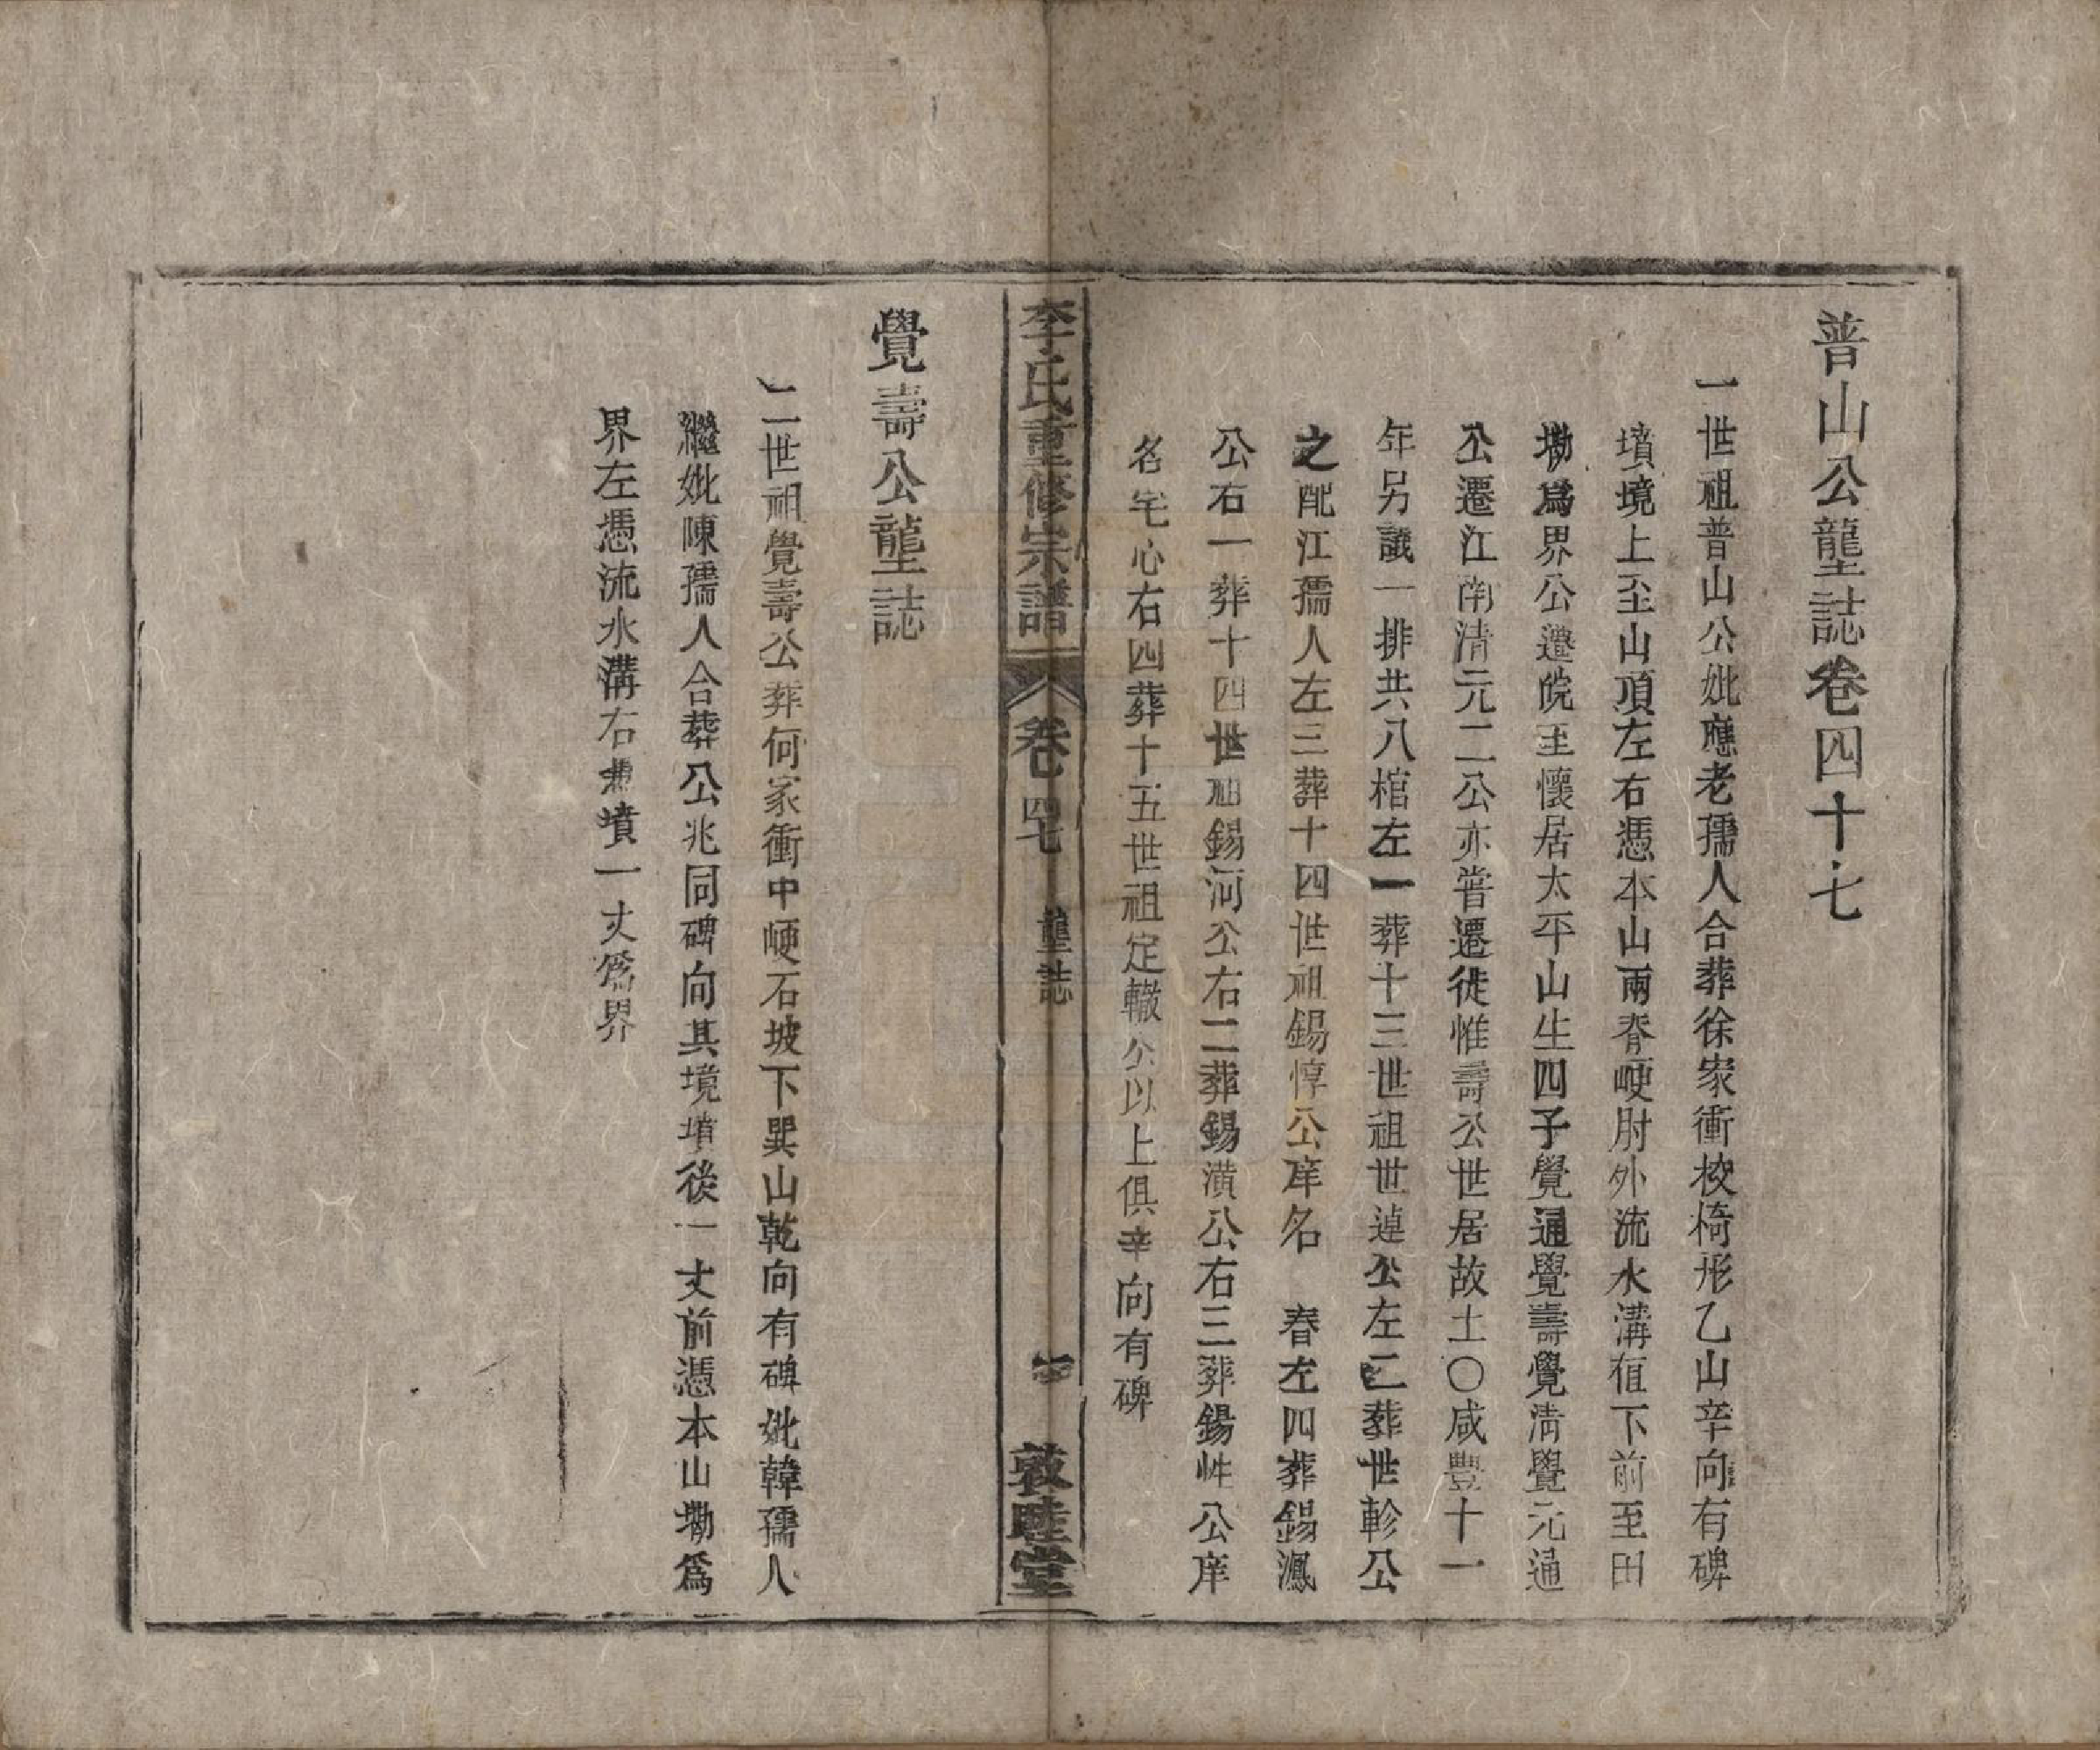 普山公壟誌卷四十七
一世祖普山公妣應老孺人合葬徐家衝校椅形乙山辛向有碑
墳境上至山頂左右憑本山兩脊峺肘外流水溝值下前至田
墈爲界公遷皖至懷居太平山生四子覺通覺壽覺淸覺元通
公遷江南清元二公亦嘗遷徙惟壽公世居故土〇咸豐十一
年另議一排共八棺左一葬十三世祖世逴公左二葬世軫公
之配江孺人左三葬十四世祖錫惇公庠名 春左四葬錫鳳
公右一葬十四世祖錫河公右二葬錫潢公右三葬錫性公庠
名宅心右四葬十五世祖定轍公以上俱辛向有碑
李氏重修宗譜 卷四七 壟誌 敦睦堂
覺壽公壟誌
二世祖覺壽公葬何家衝中峺石坡下巽山乾向有碑妣韓孺人
繼妣陳孺人合葬公兆同碑向其境墳後一丈前憑本山墈爲
界左憑流水溝右憑墳一丈爲界